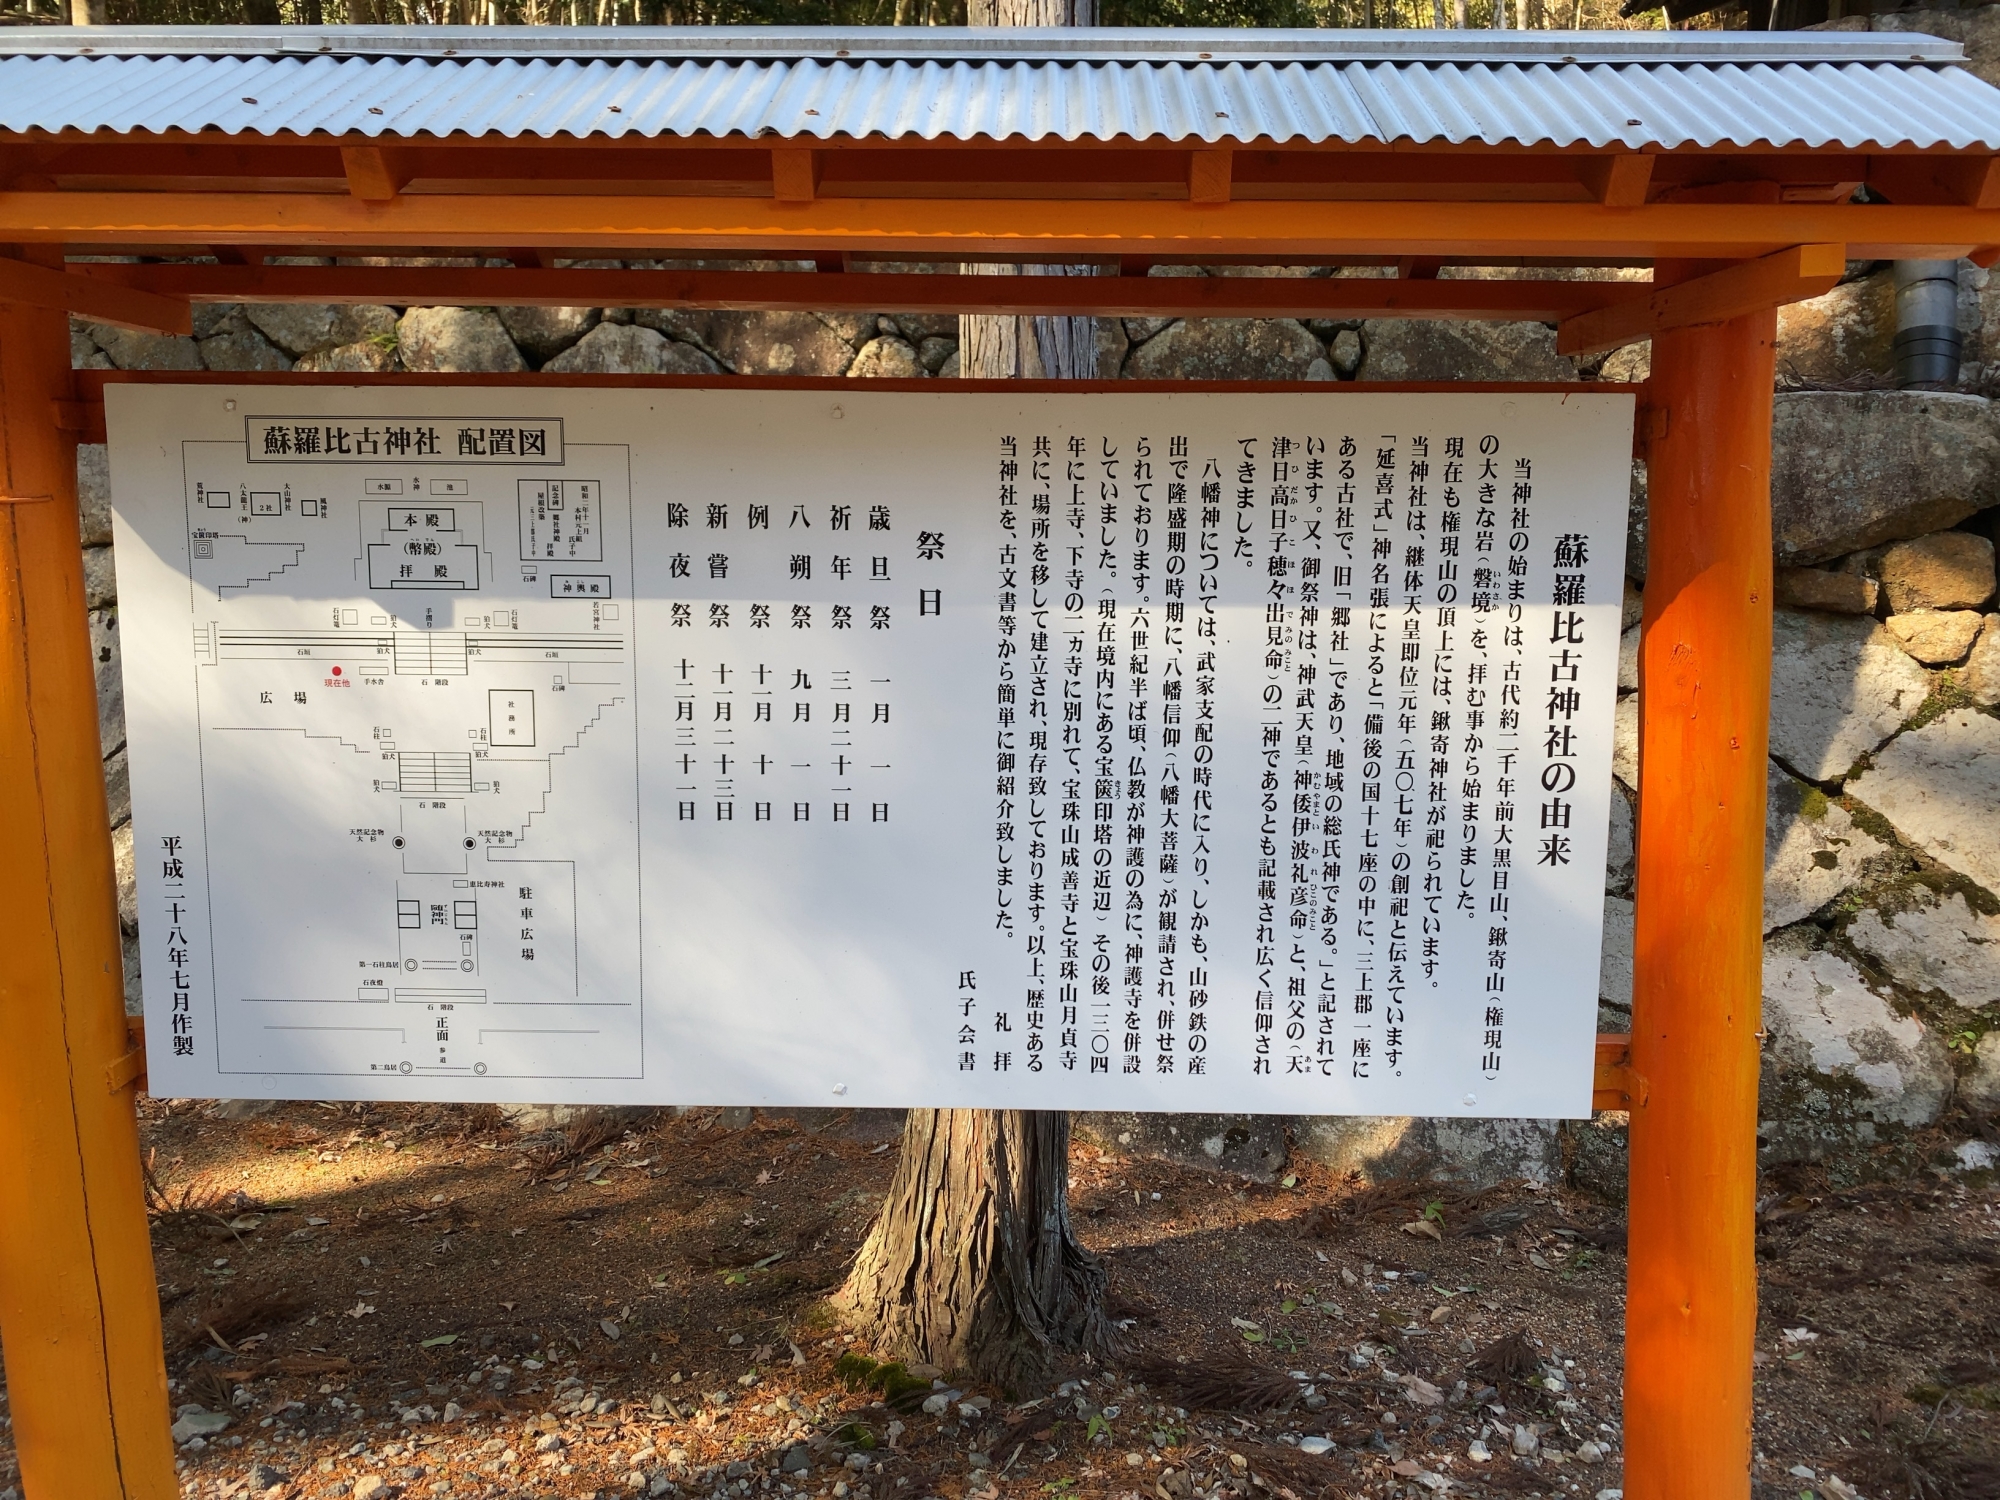 蘇羅比古神社の由来
当神社の始まりは、古代約二千年前大黒目山、鍬寄山（権現山）
の大きな岩（磐境）を、拝む事から始まりました。
現在も権現山の頂上には、鍬寄神社が祀られています。
当神社は、継体天皇即位元年（五〇七年）の創祀と伝えています。
「延喜式」神名張によると「備後の国十七座の中に、三上郡一座に
ある古社で、旧「郷社」であり、地域の総氏神である。」と記されて
います。又、御祭神は、神武天皇（神倭伊波礼彦命）と、祖父の（天
津日高日子穂々出見命）の二神であるとも記載され広く信仰され
てきました。
八幡神については、武家支配の時代に入り、しかも、山砂鉄の産
出で隆盛期の時期に、八幡信仰（八幡大菩薩）が観請され、併せ祭
られております。六世紀半ば頃、仏教が神護の為に、神護寺を併設
していました。（現在境内にある宝篋印塔の近辺）その後一三〇四
年に上寺、下寺の二ヵ寺に別れて、宝珠山成善寺と宝珠山月貞寺
共に、場所を移して建立され、現存致しております。以上、歴史ある
当神社を、古文書等から簡単に御紹介致しました。
礼拝
氏子会書
祭日
歳旦祭 一月一日
祈年祭 三月二十一日
八朔祭 九月一日
例祭 十一月十日
新嘗祭 十一月二十三日
除夜祭 十二月三十一日
蘇羅比古神社 配置図
荒神社
八大龍王（神）
2社
大山神社
風神社
水源
水神
池
本殿
（幣殿）
拝殿
記念碑
昭和
石碑
神輿殿
若宮神社
宝篋印塔
石灯篭
狛犬
手摺り
狛犬
石灯篭
石垣
狛犬
狛犬
石垣
現在地
手水舎
石 階段
石碑
広場
社務所
石柱
狛犬
石柱
狛犬
狛犬
狛犬
石 階段
天然記念物
大杉
天然記念物
大杉
恵比寿神社
随神門
石碑
駐車広場
第一石柱鳥居
石夜燈
石 階段
正面
参道
第二鳥居
平成二十八年七月作製